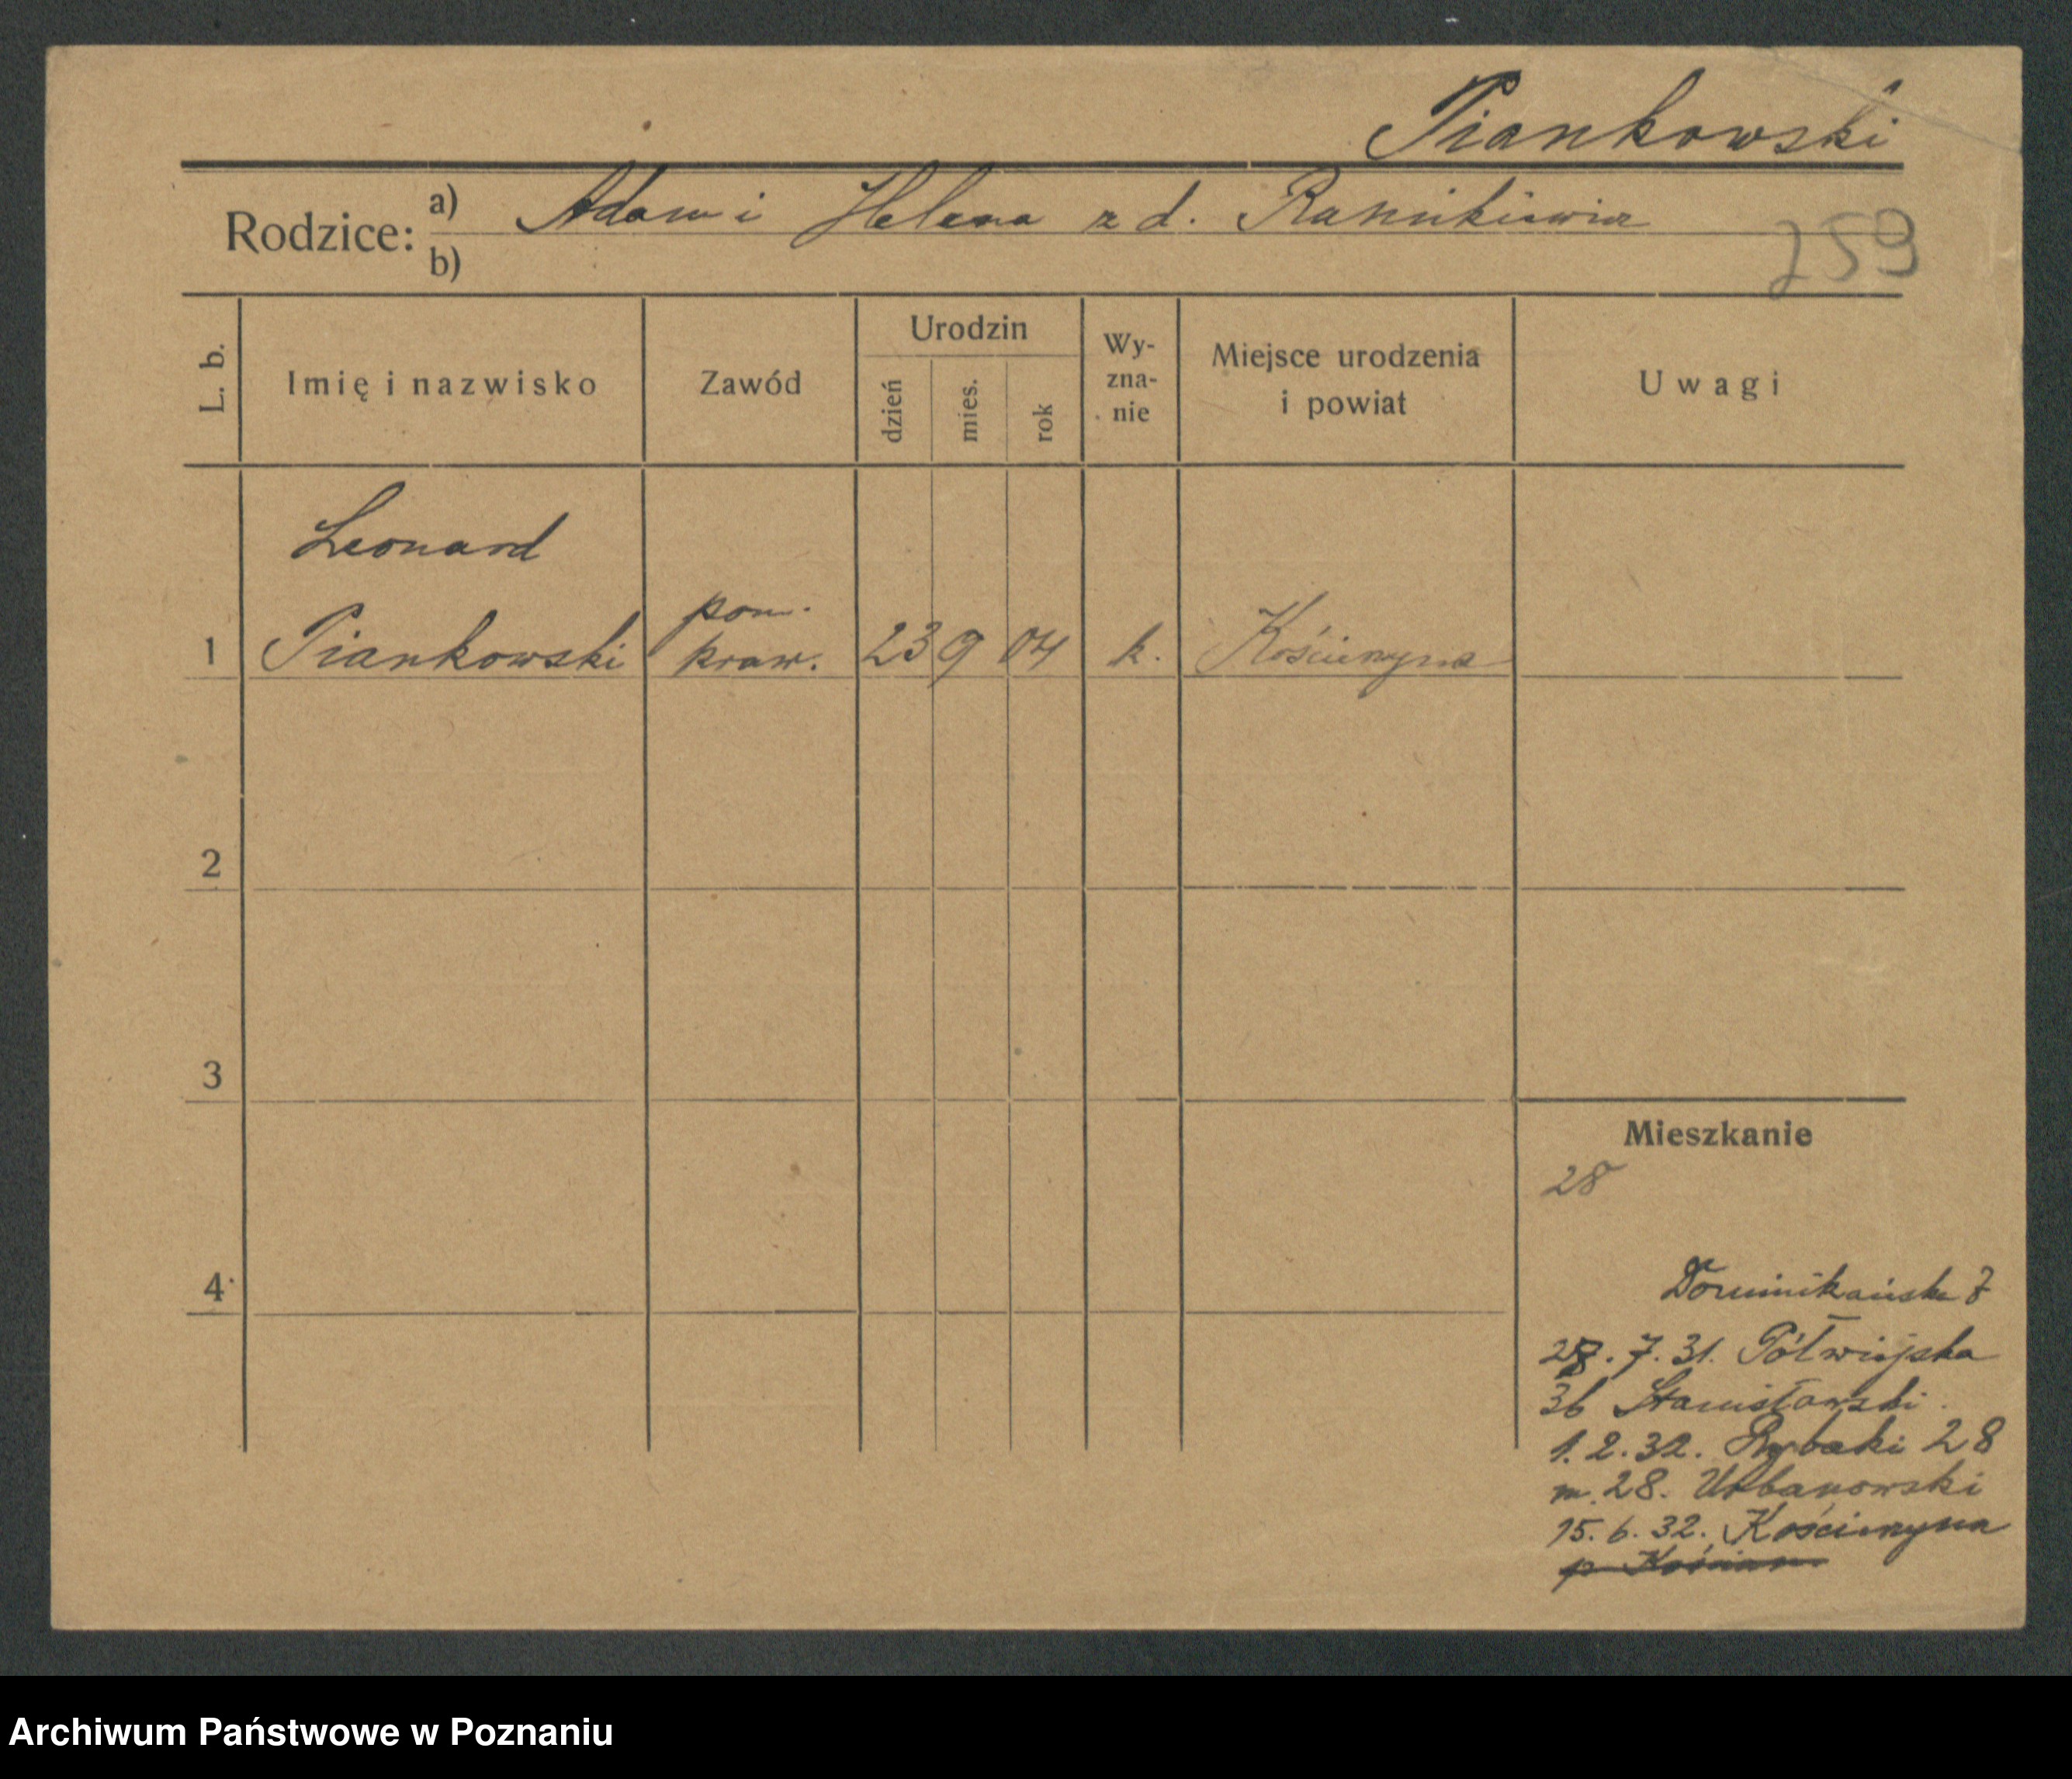 Piankowski
Rodzice: a) Adam i Helena z d.
b)
259
L. b.
Imię i nazwisko
Zawód
Urodzin
dzień
mies.
rok
Wy-
zna-
nie
Miejsce urodzenia
i powiat
Uwagi
Leonard
pom.
1 Piankowski kraw. 23 9 04 k. Kościerzyna
2
3
Mieszkanie
28
4
Dominikańska 7
7. 31. Półwiejska
36 Stanisławski
1. 2. 32. Rybaki 28
m. 28. Urbanowski
15. 6. 32. Kościerzyna
Archiwum Państwowe w Poznaniu